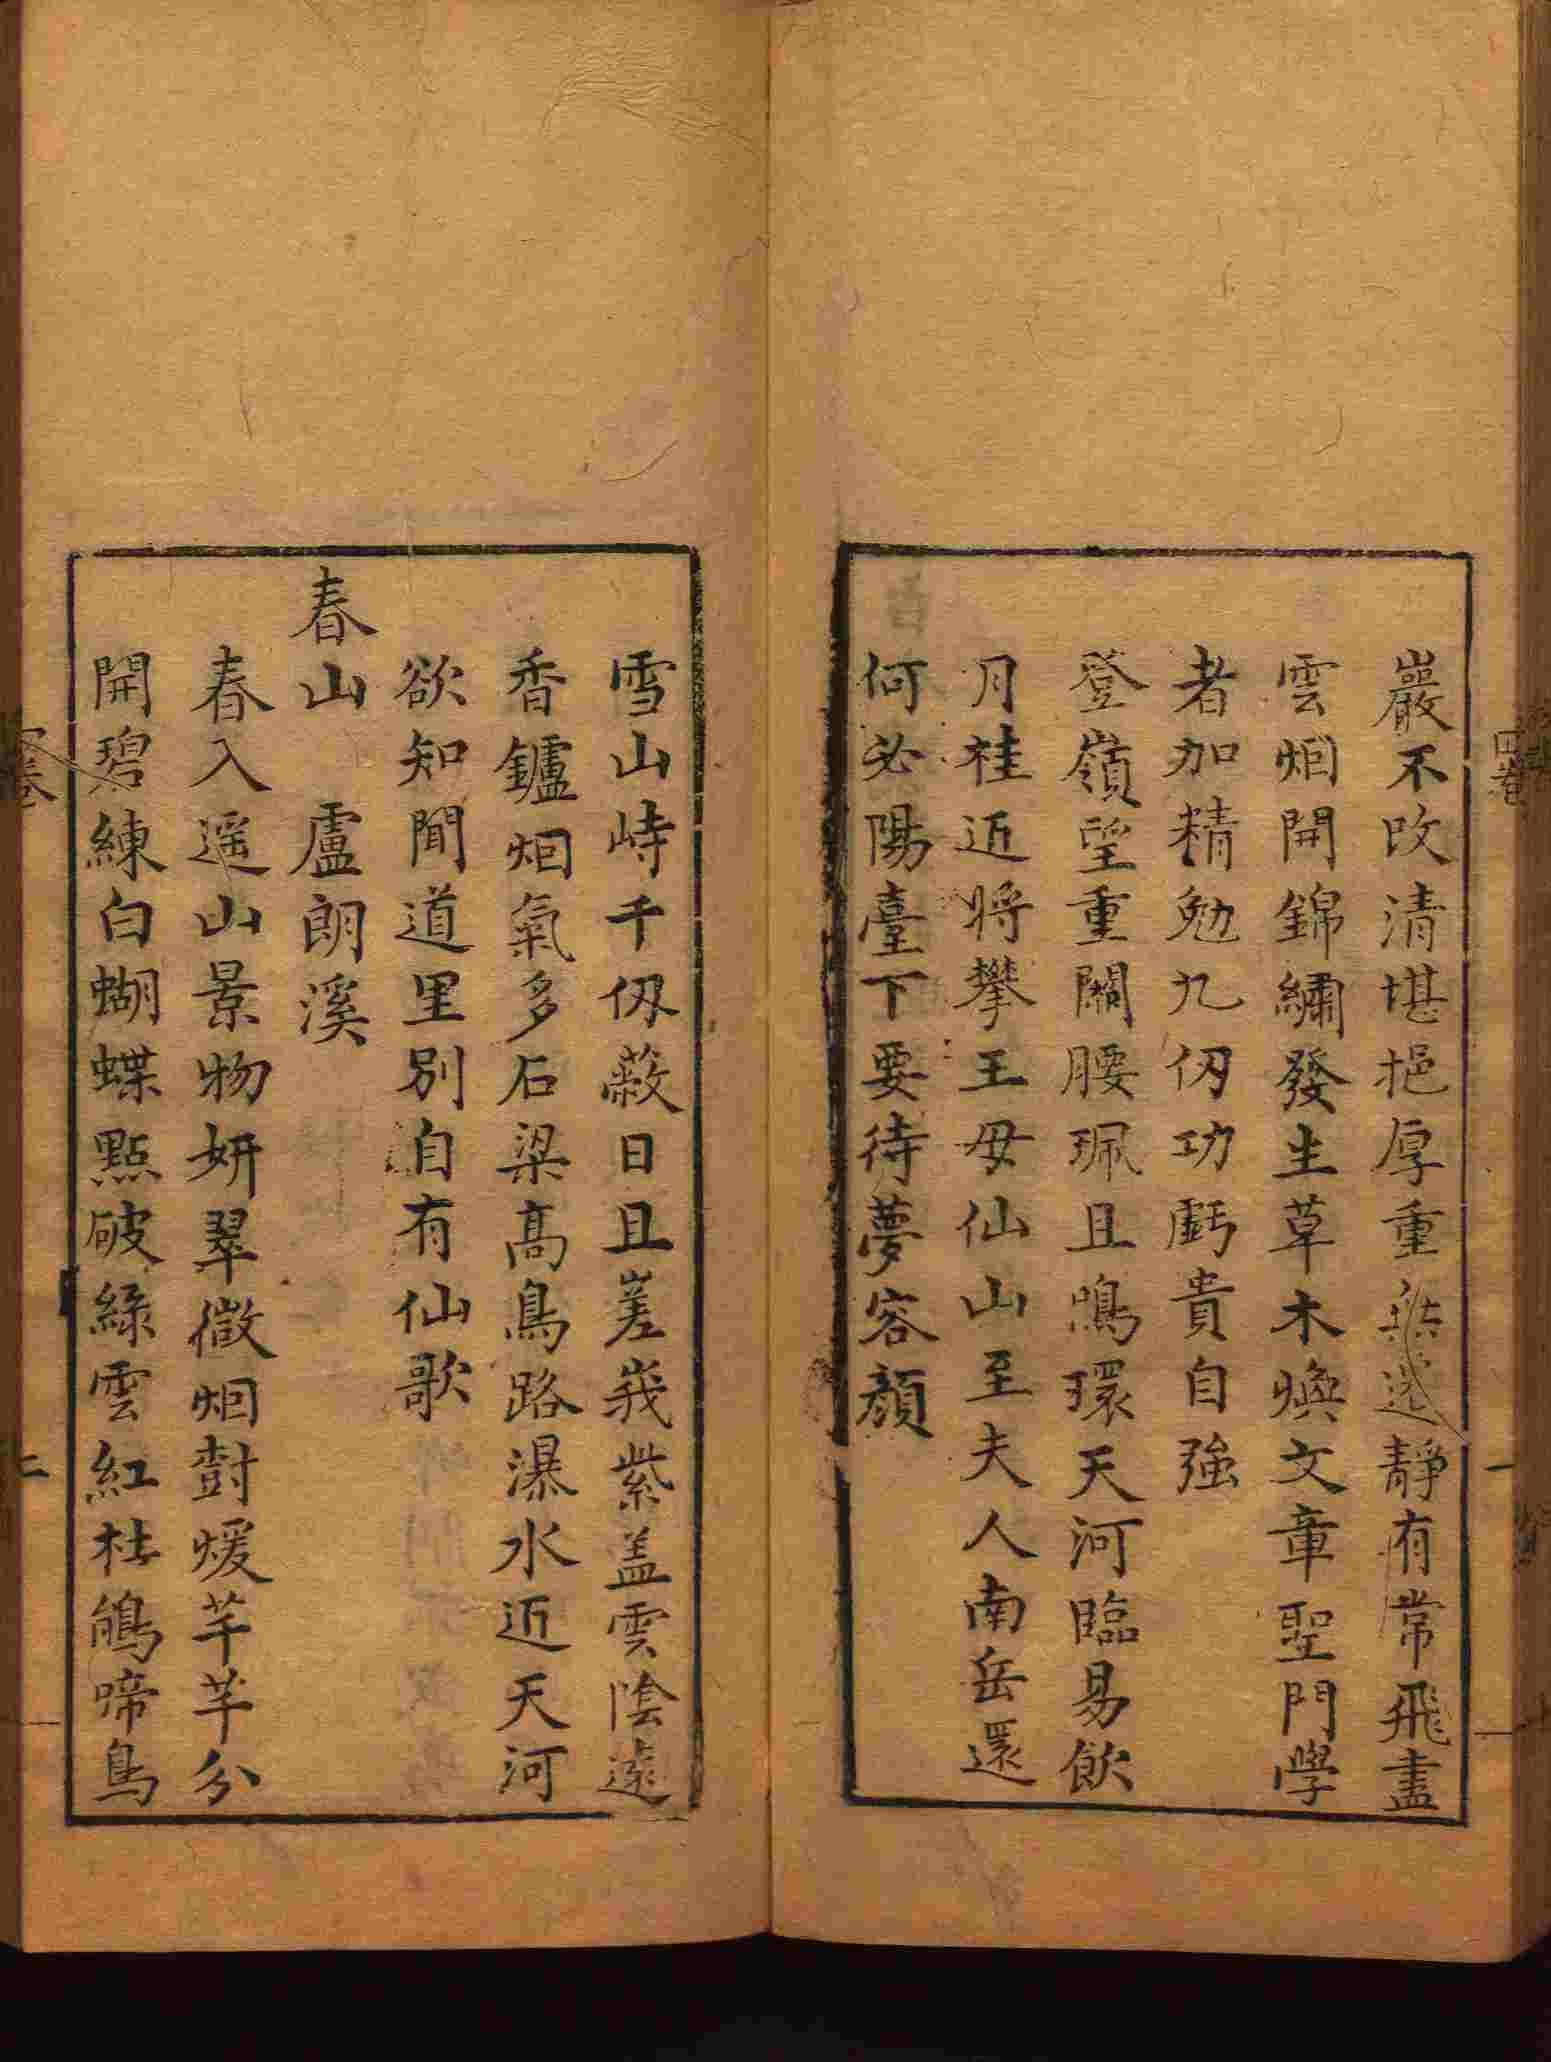 巖不改清堪挹厚重無遷靜有常飛盡
雲烟開錦繡發生草木煥文章聖門學
者加精勉九仭功虧貴自強
登嶺望重關腰珮且鳴環天河臨易飲
月桂近將攀王母仙山至夫人南岳還
何必陽臺下要待夢容顏
雪山峙千仭蔽日且嵳峩紫盖雲陰遠
香鑪烟氣多石梁髙鳥路瀑水近天河
欲知聞道里別自有仙歌
春山　盧朗溪
春入遥山景物妍翠微烟樹煖芊芊分
開碧練白蝴蝶點破綠雲紅杜鵑啼鳥